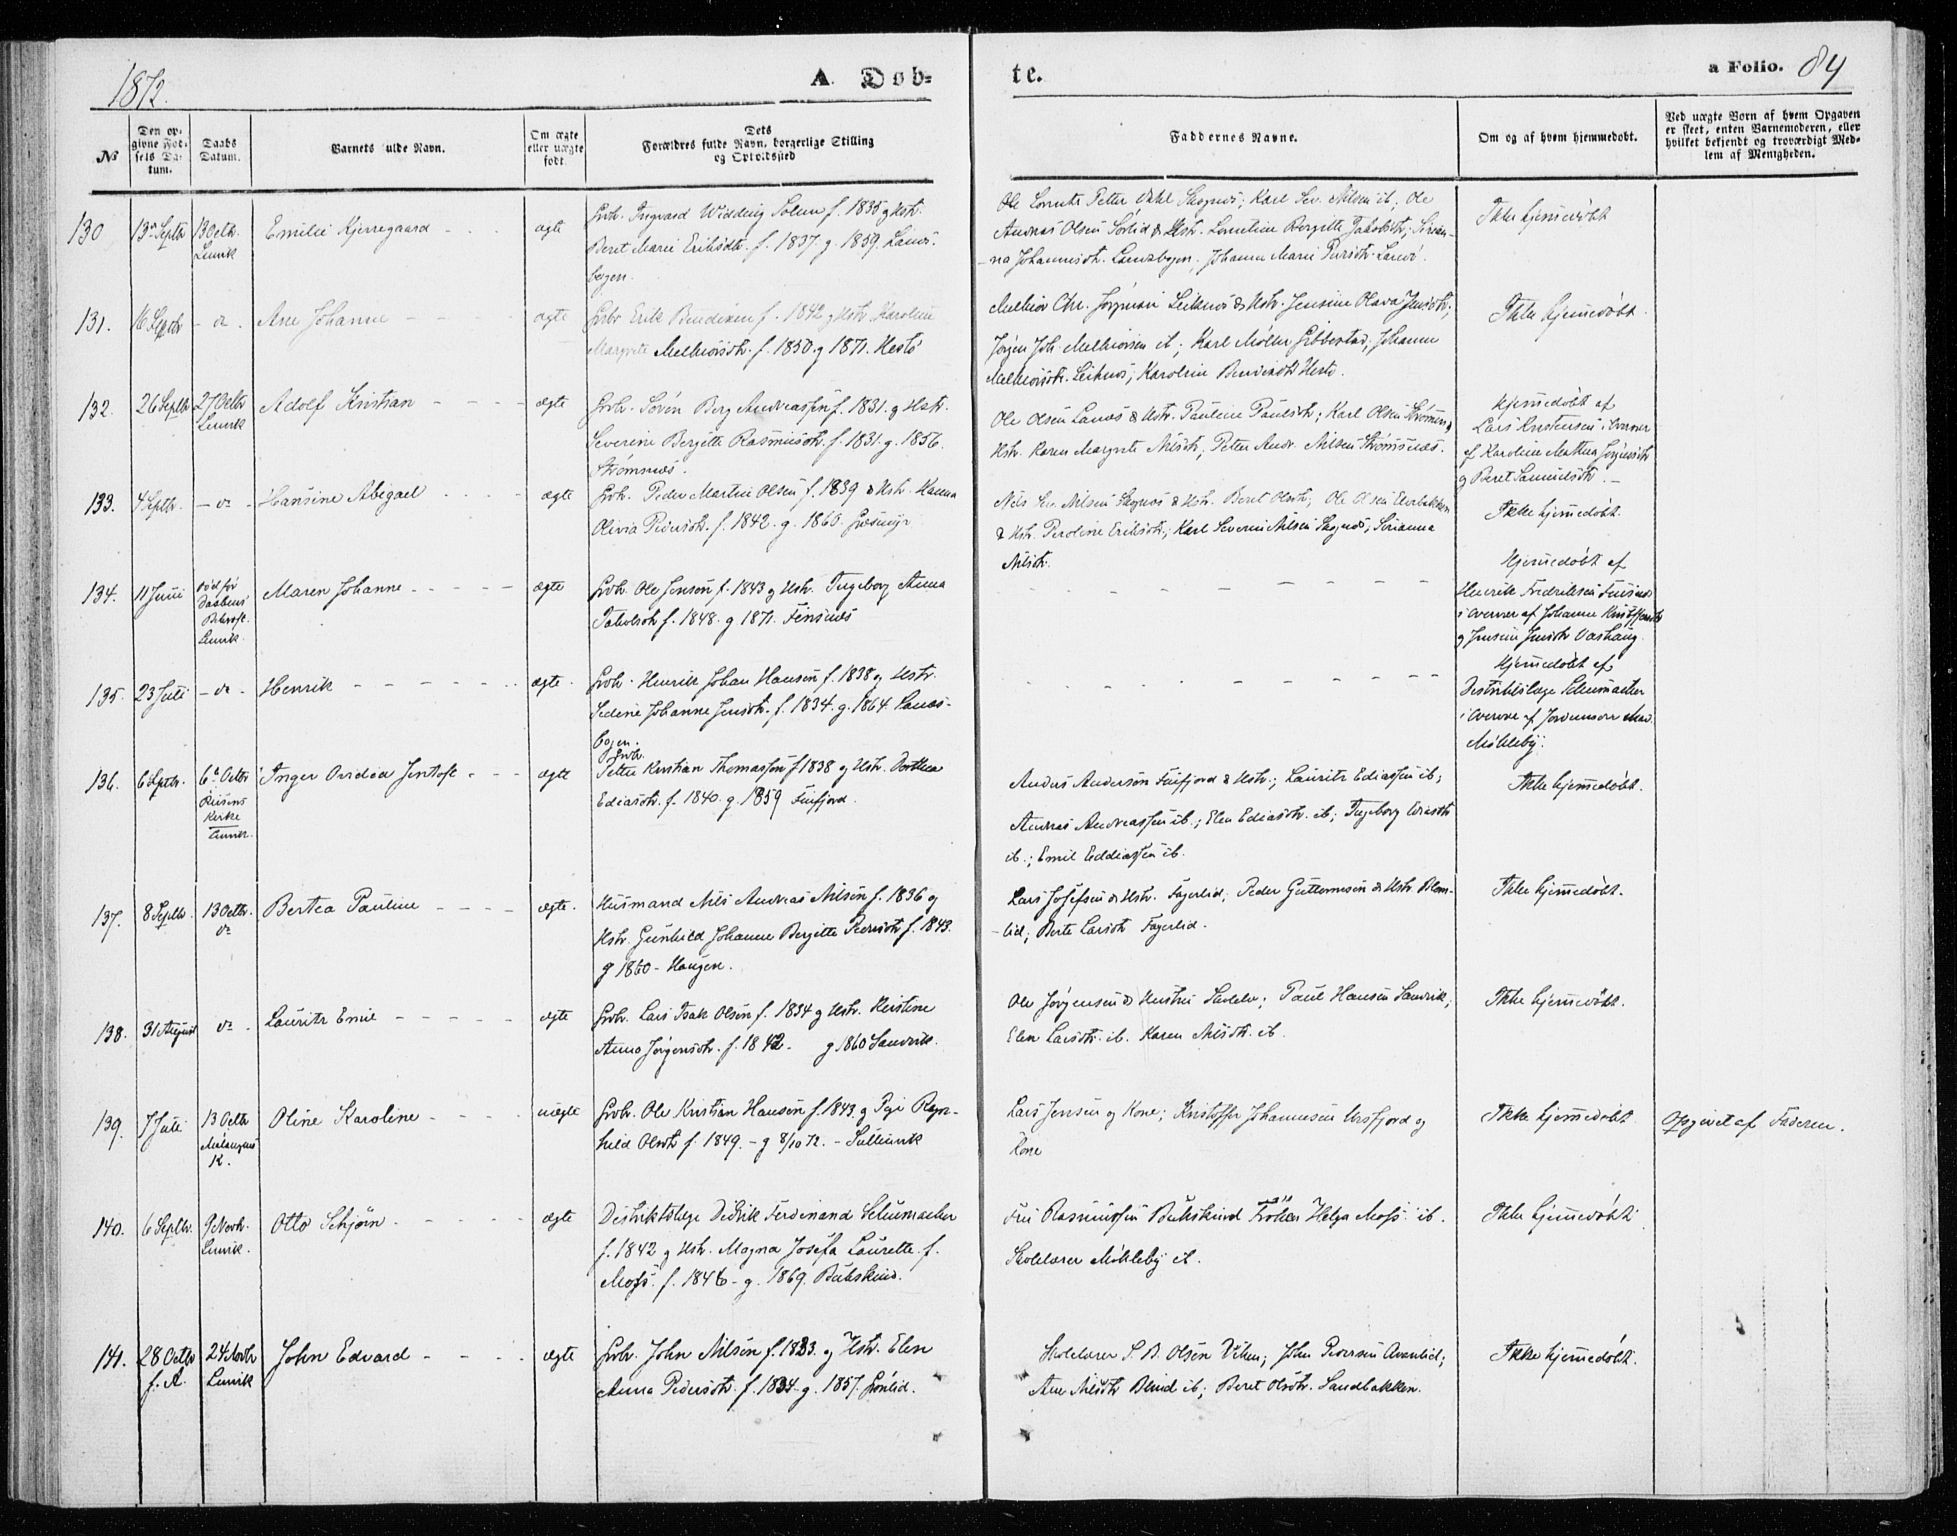 1872.
A. Døb-
te.
a Folio. 84
No
Den opgivne Fødsels Datum.
Daabs Datum.
Barnets fulde Navn.
Om ægte eller uægte født.
Dets Forældres fulde Navn, borgerlige Stilling og Opholdssted
Faddernes Navne.
Om og af hvem hjemmedøbt.
Ved uægte Børn af hvem Opgaven er skeet, enten Barnemoderen, eller hvilket bekjendt og troværdigt Medlem af Menigheden.
130 13de Septbr 13 Octbr. Lenvik
Emilie Kjerregaard - - -
ægte
Grbr. Ingvard Widding Solem f. 1835 g Hstr.
Beret Marie Eriksdtr. f. 1837. g. 1859. Lanæs-
bogen.
Ole Lorents Petter Dahl Skognæs; Karl Sev. Nilsen ib; Ole
Andreas Olsen Sørlid & Hstr. Lorentine Bergitte Jakobsdtr;
na Johannesdtr. Lanæsbogen; Johanna Marie
Ikke hjemmedøbt
131. 16 Septbr - do -
Ane Johanne - - -
ægte
Grbr Erik Bendixen f. 1842 g Hstr Karoline
Margrete Melkiorsdtr. f. 1850. g 1871. Hestø
Melkior Chr. Jørgensen Leiknes & Hstr. Jensine Olava Jensdtr;
Jørgen Joh. Melkiorsen ib; Karl Møller Gibbostad; Johanna
Melkiorsdtr. Leiknes; Karoline Bendixdtr Hestø.
Ikke hjemmedøbt.
132. 26 Septbr 27 Octbr Lenvik
Adolf Kristian - - - -
ægte
Grbr. Søren Berg Andreassen f. 1831. g Hstr.
Severine Bergitte Rasmusdtr. f. 1831. g. 1856.
Strømnæs.
Ole Olsen Lanæs & Hstr. Pauline Paulsdtr; Karl Olsen
Hstr. Karen Margrete Nilsdtr; Petter Andr. Nilsen Strømsnæs.
Hjemmedøbt af
Lars Kristensen i Overvær
af Karoline Mathea Jørgensdtr
g Beret Samuelsdtr. -
133. 4 Septbr. - do -
Hansine Abigael - - -
ægte
Grbr. Peder Martin Olsen f. 1839 & Hstr. Hanna
Olivia Pedersdtr. f. 1842. g. 1860.
Nils Sev. Nilsen Skognæs & Hstr. Beret Olsdtr; Ole Olsen
& Hstr. Peroline Eriksdtr; Karl Severin Nilsen Skognæs; Serianna
Nilsdtr.
Ikke hjemmedøbt.
134. 11 Juni død før Daabens Bekræft. Lenvik
Maren Johanne - - - -
ægte
Grbr. Ole Jensen f. 1843 g Hstr. Ingeborg Anna
Jakobsdtr f. 1848. g 1871. Finsnæs
- - - - - - - -
Hjemmedøbt af
Henrik Fredriksen Finsnæs
i Overvær af Johanna Kristoffersdtr
g Jensine Jensdtr
135. 23 Juli - do -
Henrik - - - -
ægte.
Grbr. Henrik Johan Hansen f. 1838 g Hstr.
Johanne Jensdtr. f. 1834. g. 1864. Lanæs-
bogen.
- - - - - - - -
Hjemmedøbt af
Distriktslæge Schumacher
i Overvær af Jordemoder Mad.
Møkleby.
136. 6 Septbr. 6te Octbr Kirke
Inger Ovidia Jentoft - - -
ægte
Grbr.
Petter Kristian Thomassen f 1838 g Hstr. Dorthea
Ediasdtr. f. 1840. g. 1859
Anders Andersen & Hstr.; Lauritz Ediassen ib;
Andreas Andreassen ib.; Elen Ediasdtr. ib; Ingeborg
ib.; Emil Eddiassen ib.
Ikke hjemmedøbt.
137. 8 Septbr. 13 Octbr. do
Bertea Pauline - - - -
ægte.
Husmand Nils Andreas Nilsen f. 1836 g
Hstr. Gunhild Johanne Bergitte Pedersdtr f. 1843.
g 1860 - Haugen.
Lars Josefsen & Hstr. Fagerlid; Peder Guttormsen & Hstr. Blom-
-lid; Berte Larsdtr Fagerlid.
Ikke hjemmedøbt.
138. 31 August do -
Lauritz Emil - - - - -
ægte
Grbr. Lars Isak Olsen f. 1834 g Hstr. Kirstine
Anna Jørgensdtr. f. 1842 - g 1860 Sandvik.
Ole Jørgensen & Hustru; Paul Hansen Sandvik;
Elen Larsdtr. ib. Karen Nilsdtr. ib.
Ikke hjemmedøbt.
139. 7 Juli 13 Octbr Malangens K.
Oline Karoline - - - -
uægte
Grbr. Ole Kristian Hansen f. 1843 g Pige Ragn-
hild Olsdtr f. 1849. - g 8/10 72. -
Lars Jensen g Kone; Kristoffer Johannesen g
Kone
Ikke hjemmedøbt
Opgivet af Faderen.
140. 6 Septbr. 9 Novbr. Lenvik.
Otto Schjørn - - - -
ægte
Distriktslæge Didrik Ferdinand Schumacher
f. 1842 g Hstr. Magna Josefa Laurette f.
Moss. f. 1846 - g. 1869. Bukskind.
Fru Rasmussen Bukskind Frøken Helga Moss ib.
Skolelærer Møkleby ib.
Ikke hjemmedøbt
141. 28 Octbr f. A. 24 Novbr Lenvik
John Edvard - - - -
ægte
Grbr. John Nilsen f. 1833. g Hstr. Elen
Anna Pedersdtr. f. 1834 g. 1857. Grønlid.
Skolelærer S. B. Olsen Viken; John Pedersen Avanlid;
Ane Nilsdtr ib; Beret Olsdtr. Sandbakken.
Ikke hjemmedøbt.